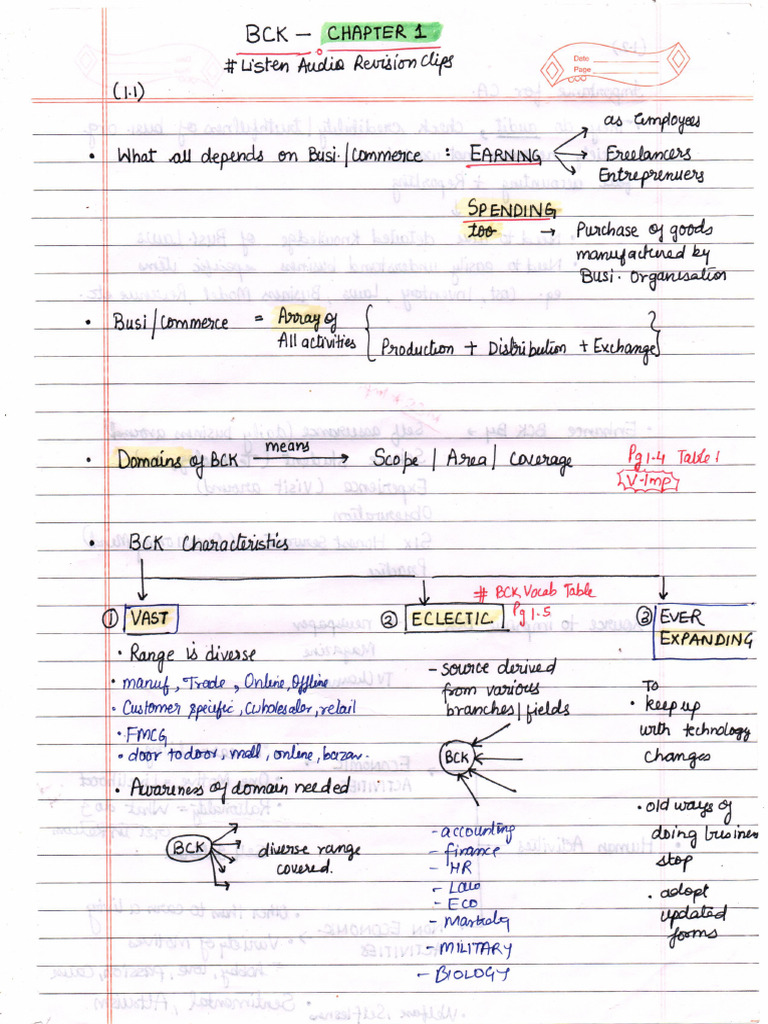 BCK – CHAPTER 1
# Listen Audio Revision Clips
Date
Page
(1.1)
• What all depends on Busi/Commerce : EARNING
as Employees
Freelancers
Entreprenuers
SPENDING
too → Purchase of goods
manufactured by
Busi. Organisation
• Busi/Commerce = Array of
All activities
{ Production + Distribution + Exchange }
• Domains of BCK means → Scope / Area / Coverage
Pg 1.4 Table 1
V-Imp
• BCK Characteristics
# BCK Vocab Table
Pg 1.5
① VAST
• Range is diverse
• manuf, Trade, Online, Offline
• Customer specific, wholesaler, retail
• FMCG
• door to door, mall, online, bazar.
• Awareness of domain needed
BCK
diverse range
covered.
② ECLECTIC
– Source derived
from various
branches/fields
BCK
– accounting
– finance
– HR
– Law
– ECO
– MILITARY
– BIOLOGY
③ EVER
EXPANDING
To
• keep up
with technology
changes
• old ways of
doing business
stop
• adopt
updated
forms